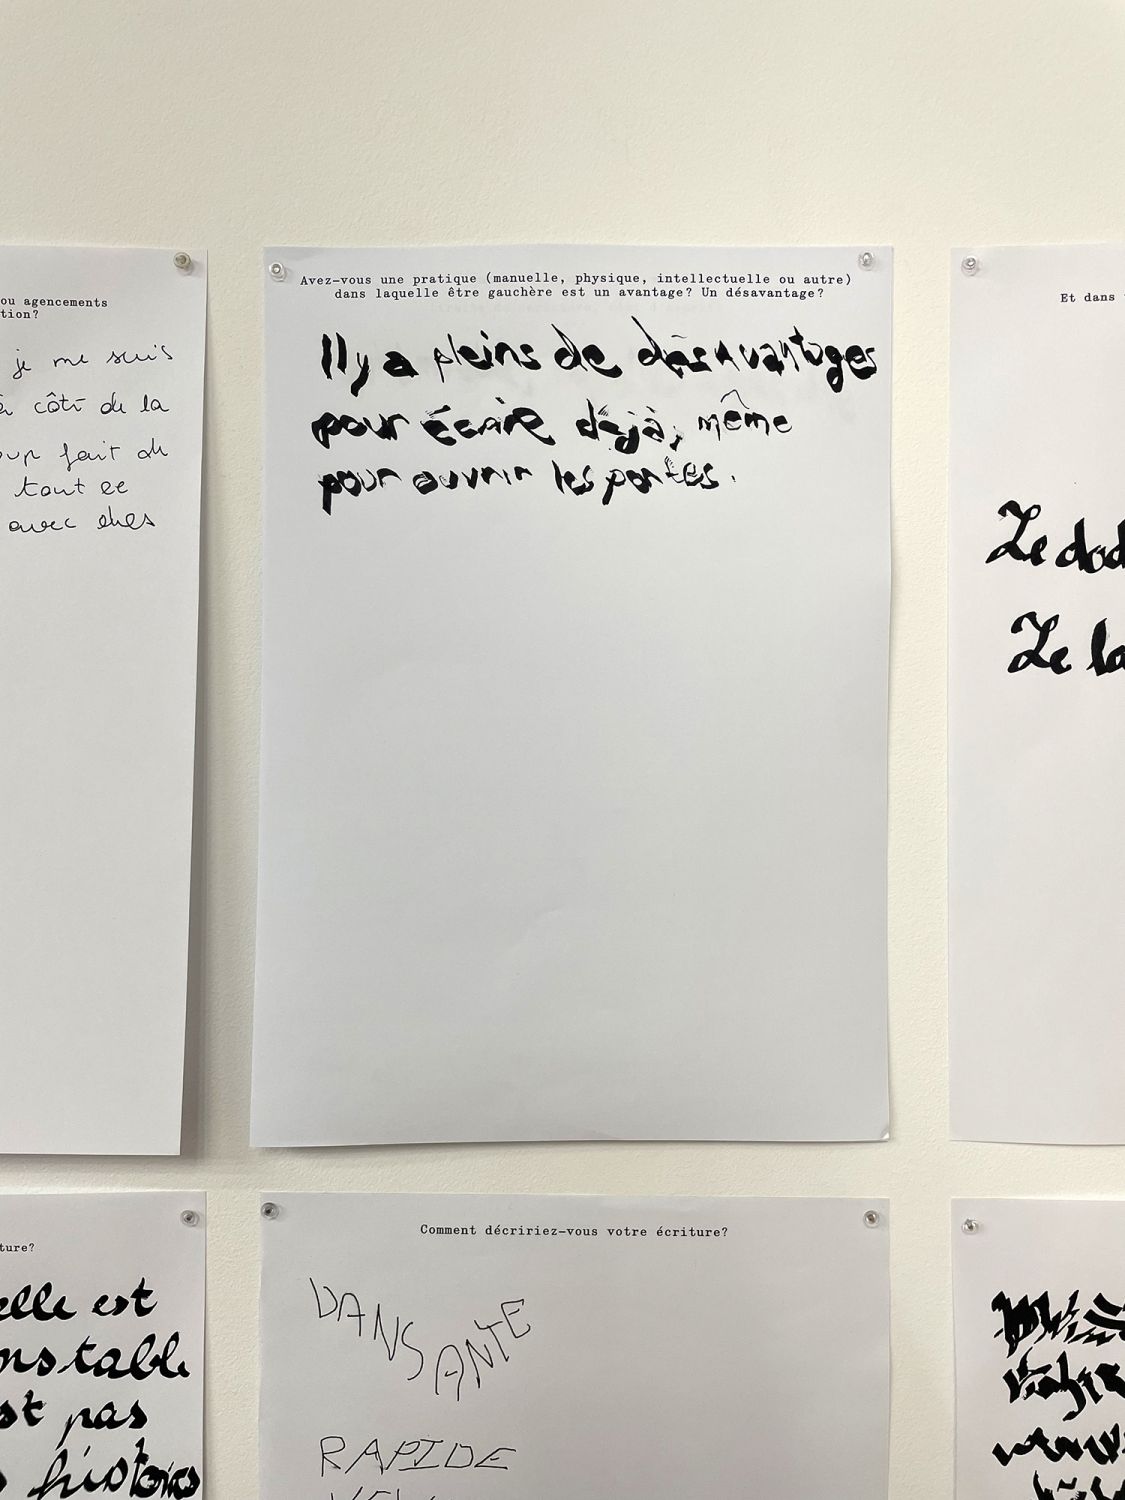 ou agencements
tion?
je me suis
à côté de la
fait du
tout ce
avec elles
Avez-vous une pratique (manuelle, physique, intellectuelle ou autre)
dans laquelle être gauchère est un avantage? Un désavantage?
Il y a pleins de désavantages
pour écrire déjà, même
pour ouvrir les portes.
Et dans
Le dod
Le la
ture?
elle est
nstable
st pas
histoires
Comment décririez-vous votre écriture?
DANSANTE
RAPIDE